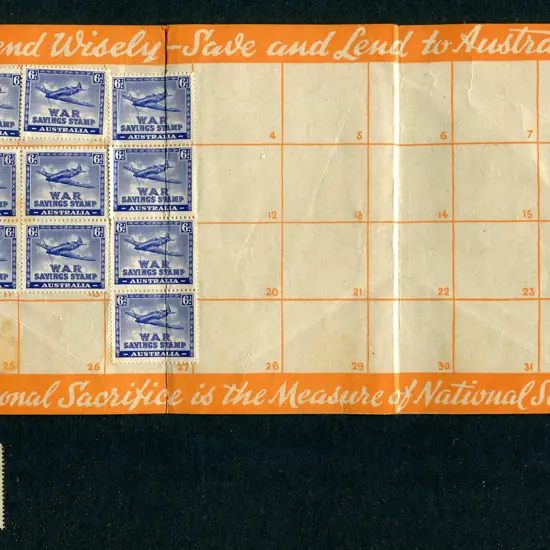 end Wisely-Save and Lend to Austra
6D 6D 6D 6D 6D
WAR WAR
SAVINGS STAMP SAVINGS STAMP
AUSTRALIA AUSTRALIA
4 5 6 7
6D 6D 6D 6D 6D
WAR WAR
SAVINGS STAMP SAVINGS STAMP
AUSTRALIA AUSTRALIA
12 13 14 15
6D 6D 6D 6D 6D
WAR WAR
SAVINGS STAMP SAVINGS STAMP
AUSTRALIA AUSTRALIA
20 21 22 23
6D 6D
WAR
SAVINGS STAMP
AUSTRALIA
25 26 27 28 29 30 31
onal Sacrifice is the Measure of National S